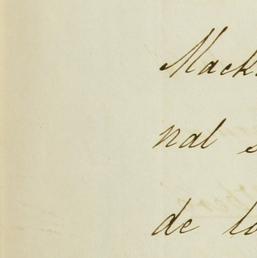 Mack
nal s
de lo